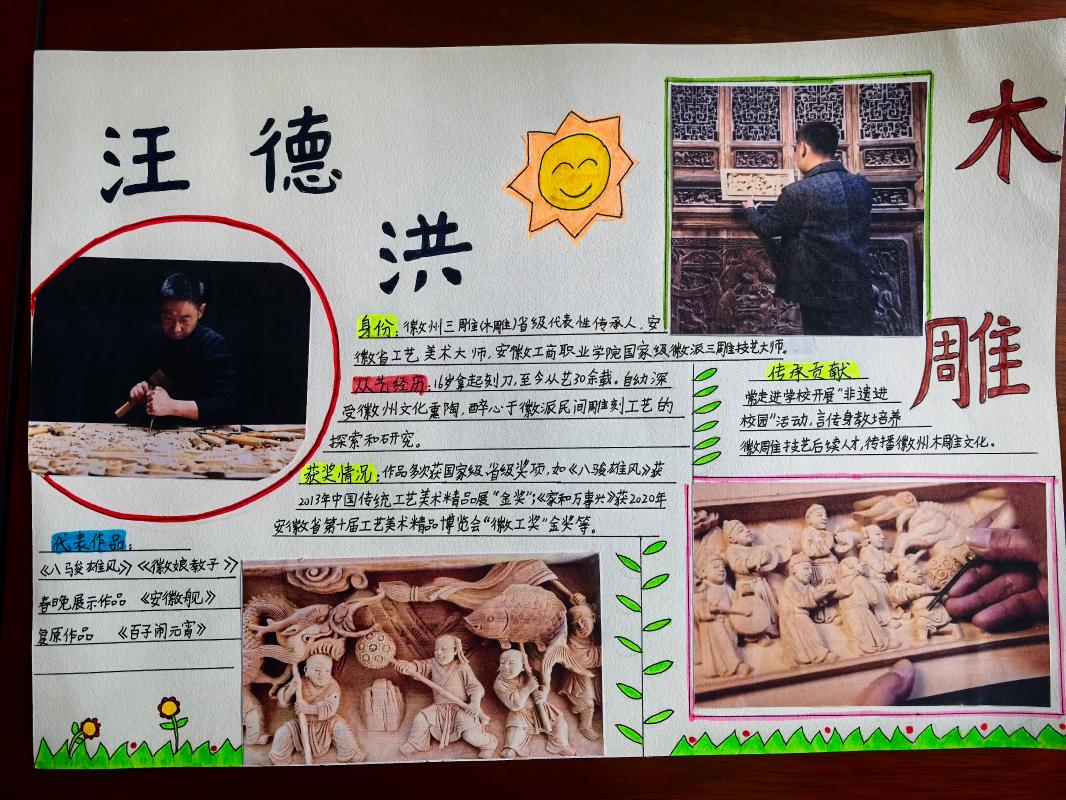 汪德洪
木雕
身份：徽州三雕（木雕）省级代表性传承人，安
徽省工艺美术大师，安徽工商职业学院国家级徽派三雕技艺大师。
从艺经历：16岁拿起刻刀，至今从艺30余载。自幼深
受徽州文化熏陶，醉心于徽派民间雕刻工艺的
探索和研究。
获奖情况：作品多次获国家级、省级奖项，如《八骏雄风》获
2013年中国传统工艺美术精品展“金奖”；《家和万事兴》获2020年
安徽省第十届工艺美术精品博览会“徽工奖”金奖等。
传承贡献
常走进学校开展“非遗进
校园”活动，言传身教培养
徽周雕技艺后续人才，传播徽州木雕文化。
代表作品：
《八骏雄风》《徽娘教子》
春晚展示作品 《安徽舰》
复原作品 《百子闹元宵》